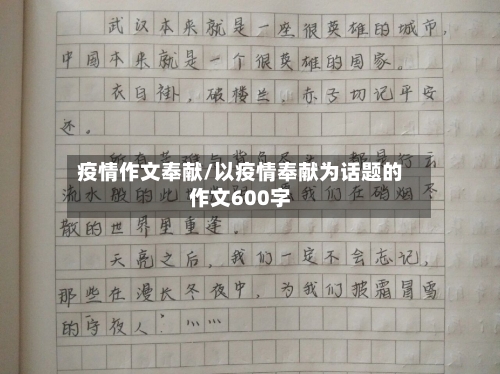 武汉本来就是一座很英雄的城市，
中国本来就是一个很英雄的国家。
衣白褂，破楼兰，赤子切记平安
还。
疫情作文奉献/以疫情奉献为话题的
作文600字
流水般的此
我们在硝烟尽
散的世界里重逢。
天亮之后，我们一定不会忘记，
那些在漫长冬夜中，为我们披霜冒雪
的"守夜人"……